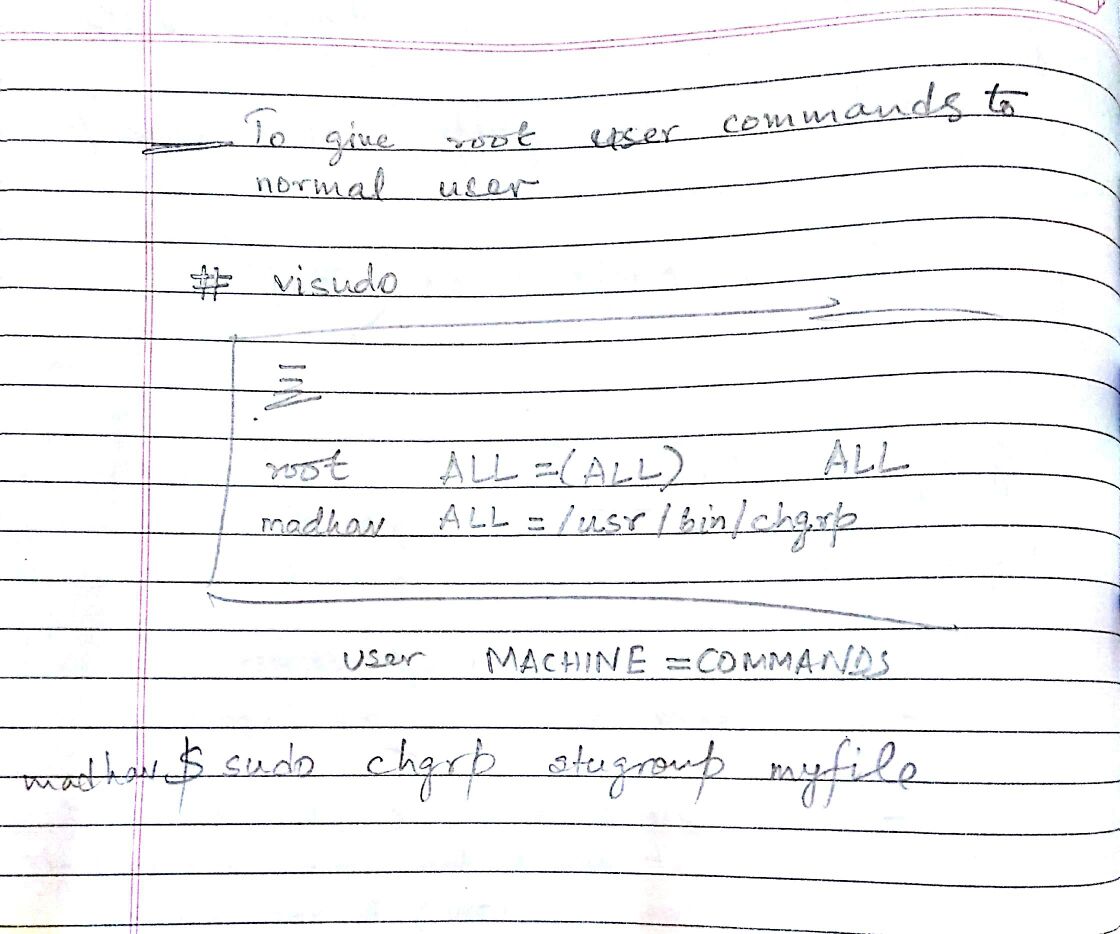 To give root user commands to
normal user
# visudo
root ALL =(ALL) ALL
madhav ALL = /usr/bin/chgrp
user MACHINE =COMMANDS
madhav $ sudo chgrp stugroup myfile